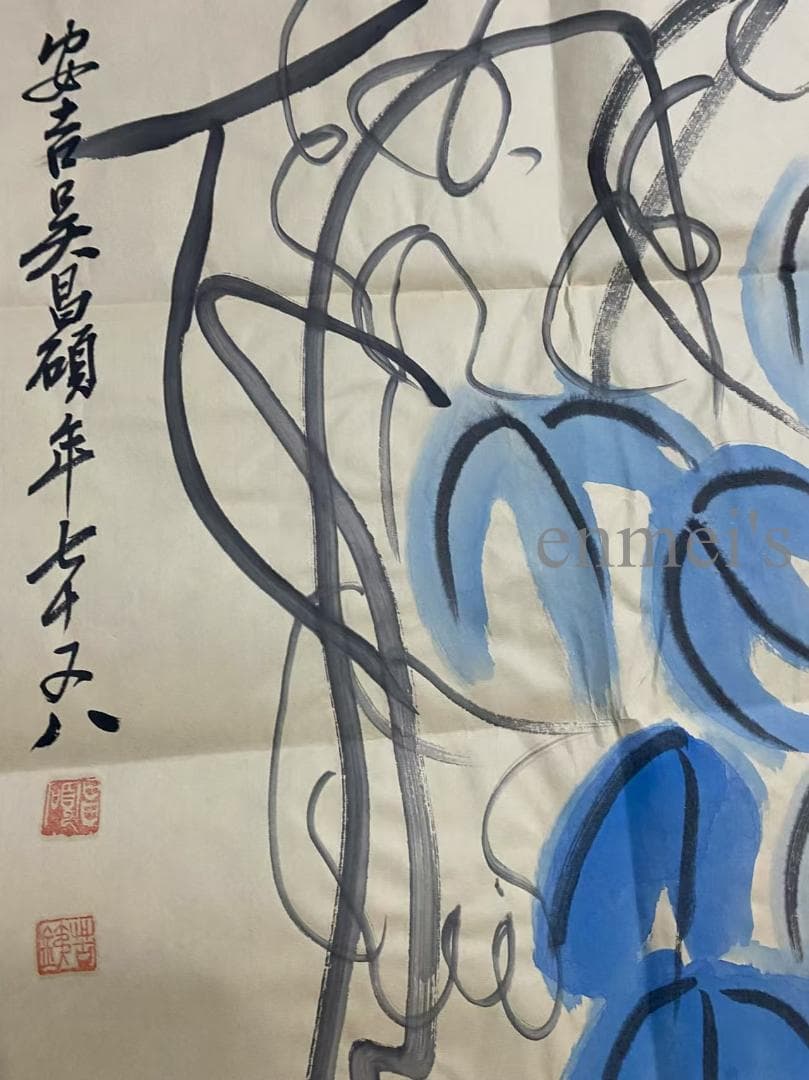 安吉吴昌碩年七十又八
enmei's